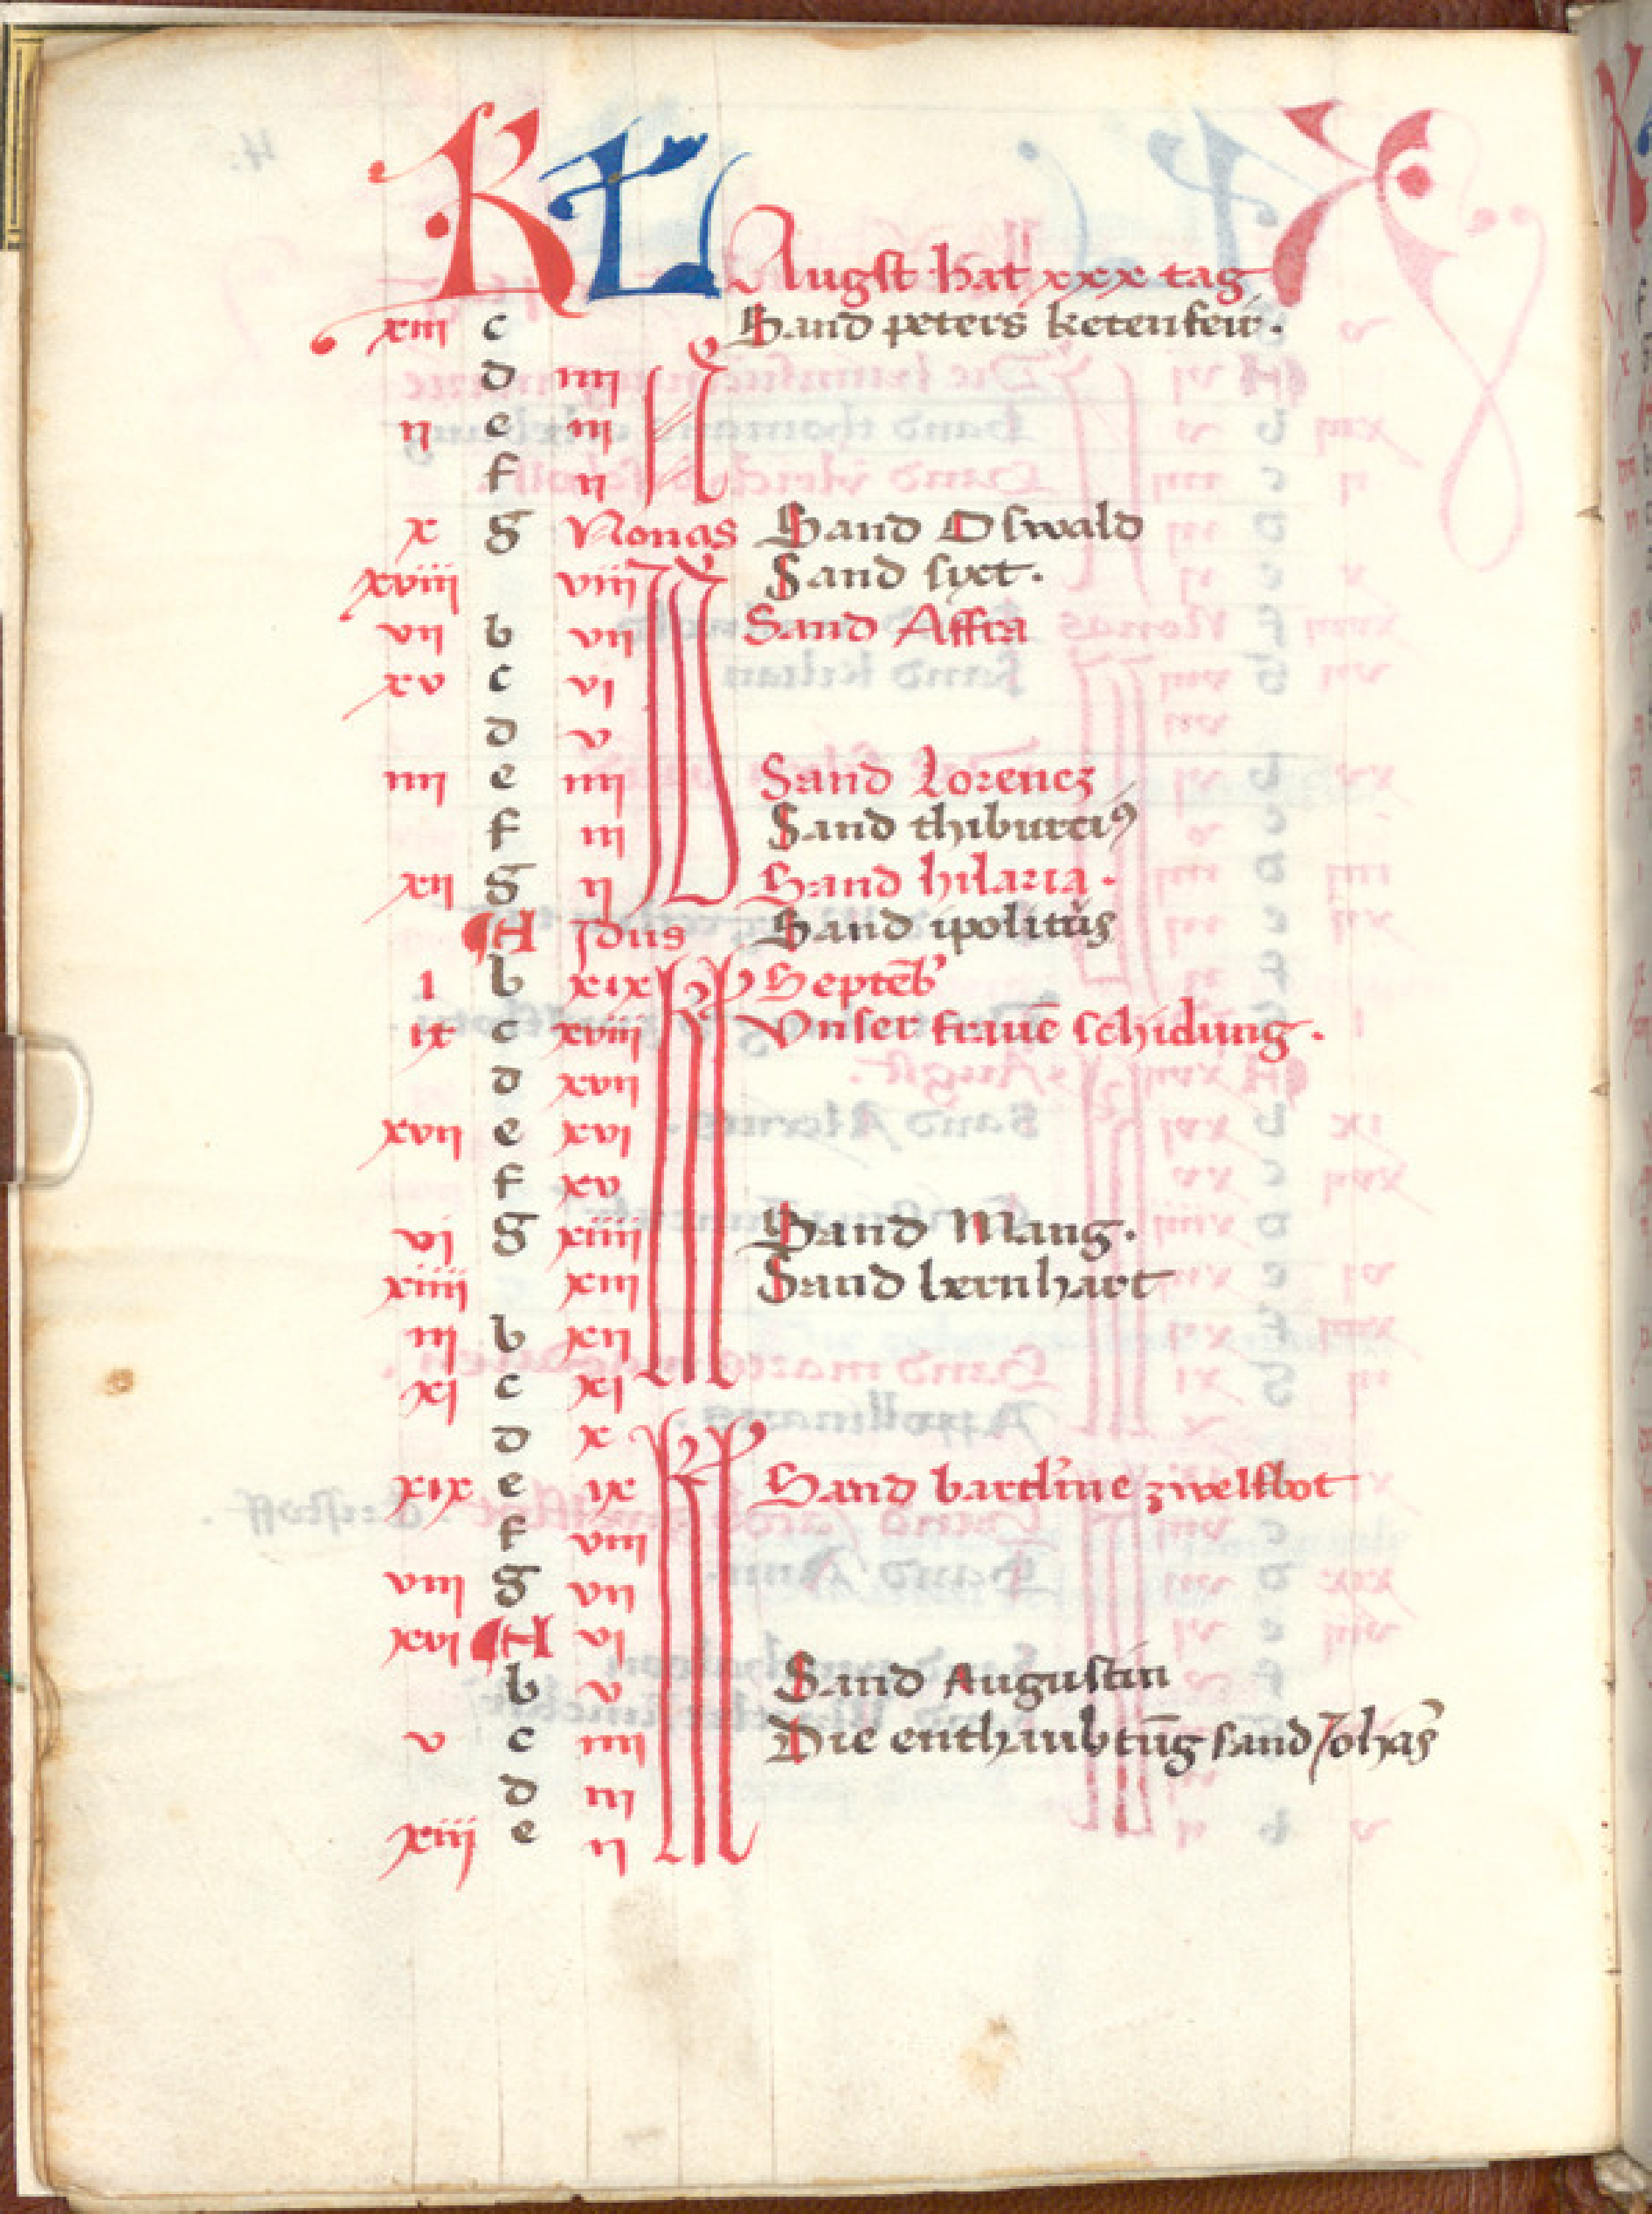 KL Augst hat xxx tag
xiii c Sand peters ketenfeir.
d iiii N
ii e iii
f ii
x g Nonas Sand Oswald
xviii viii Id Sand sixt.
vii b vii Sand Affra
xv c vi
d v
iiii e iiii Sand Lorencz
f iii Sand thiburciꝰ
xii g ii Sand hilaria.
A Idus Sand ipolitus
i b xix kl Septēb
ix c xviii Vnser frauē schidung.
d xvii
xvii e xvi
f xv
vi g xiiii Sand Mang.
xiiii xiii Sand bernhart
iii b xii
xi c xi
d x kl
xix e ix Sand bartlme zwelfbot
f viii
viii g vii
xvi A vi
b v Sand Augustin
v c iiii Die enthaubtūg sand Johās
d iii
xiii e ii